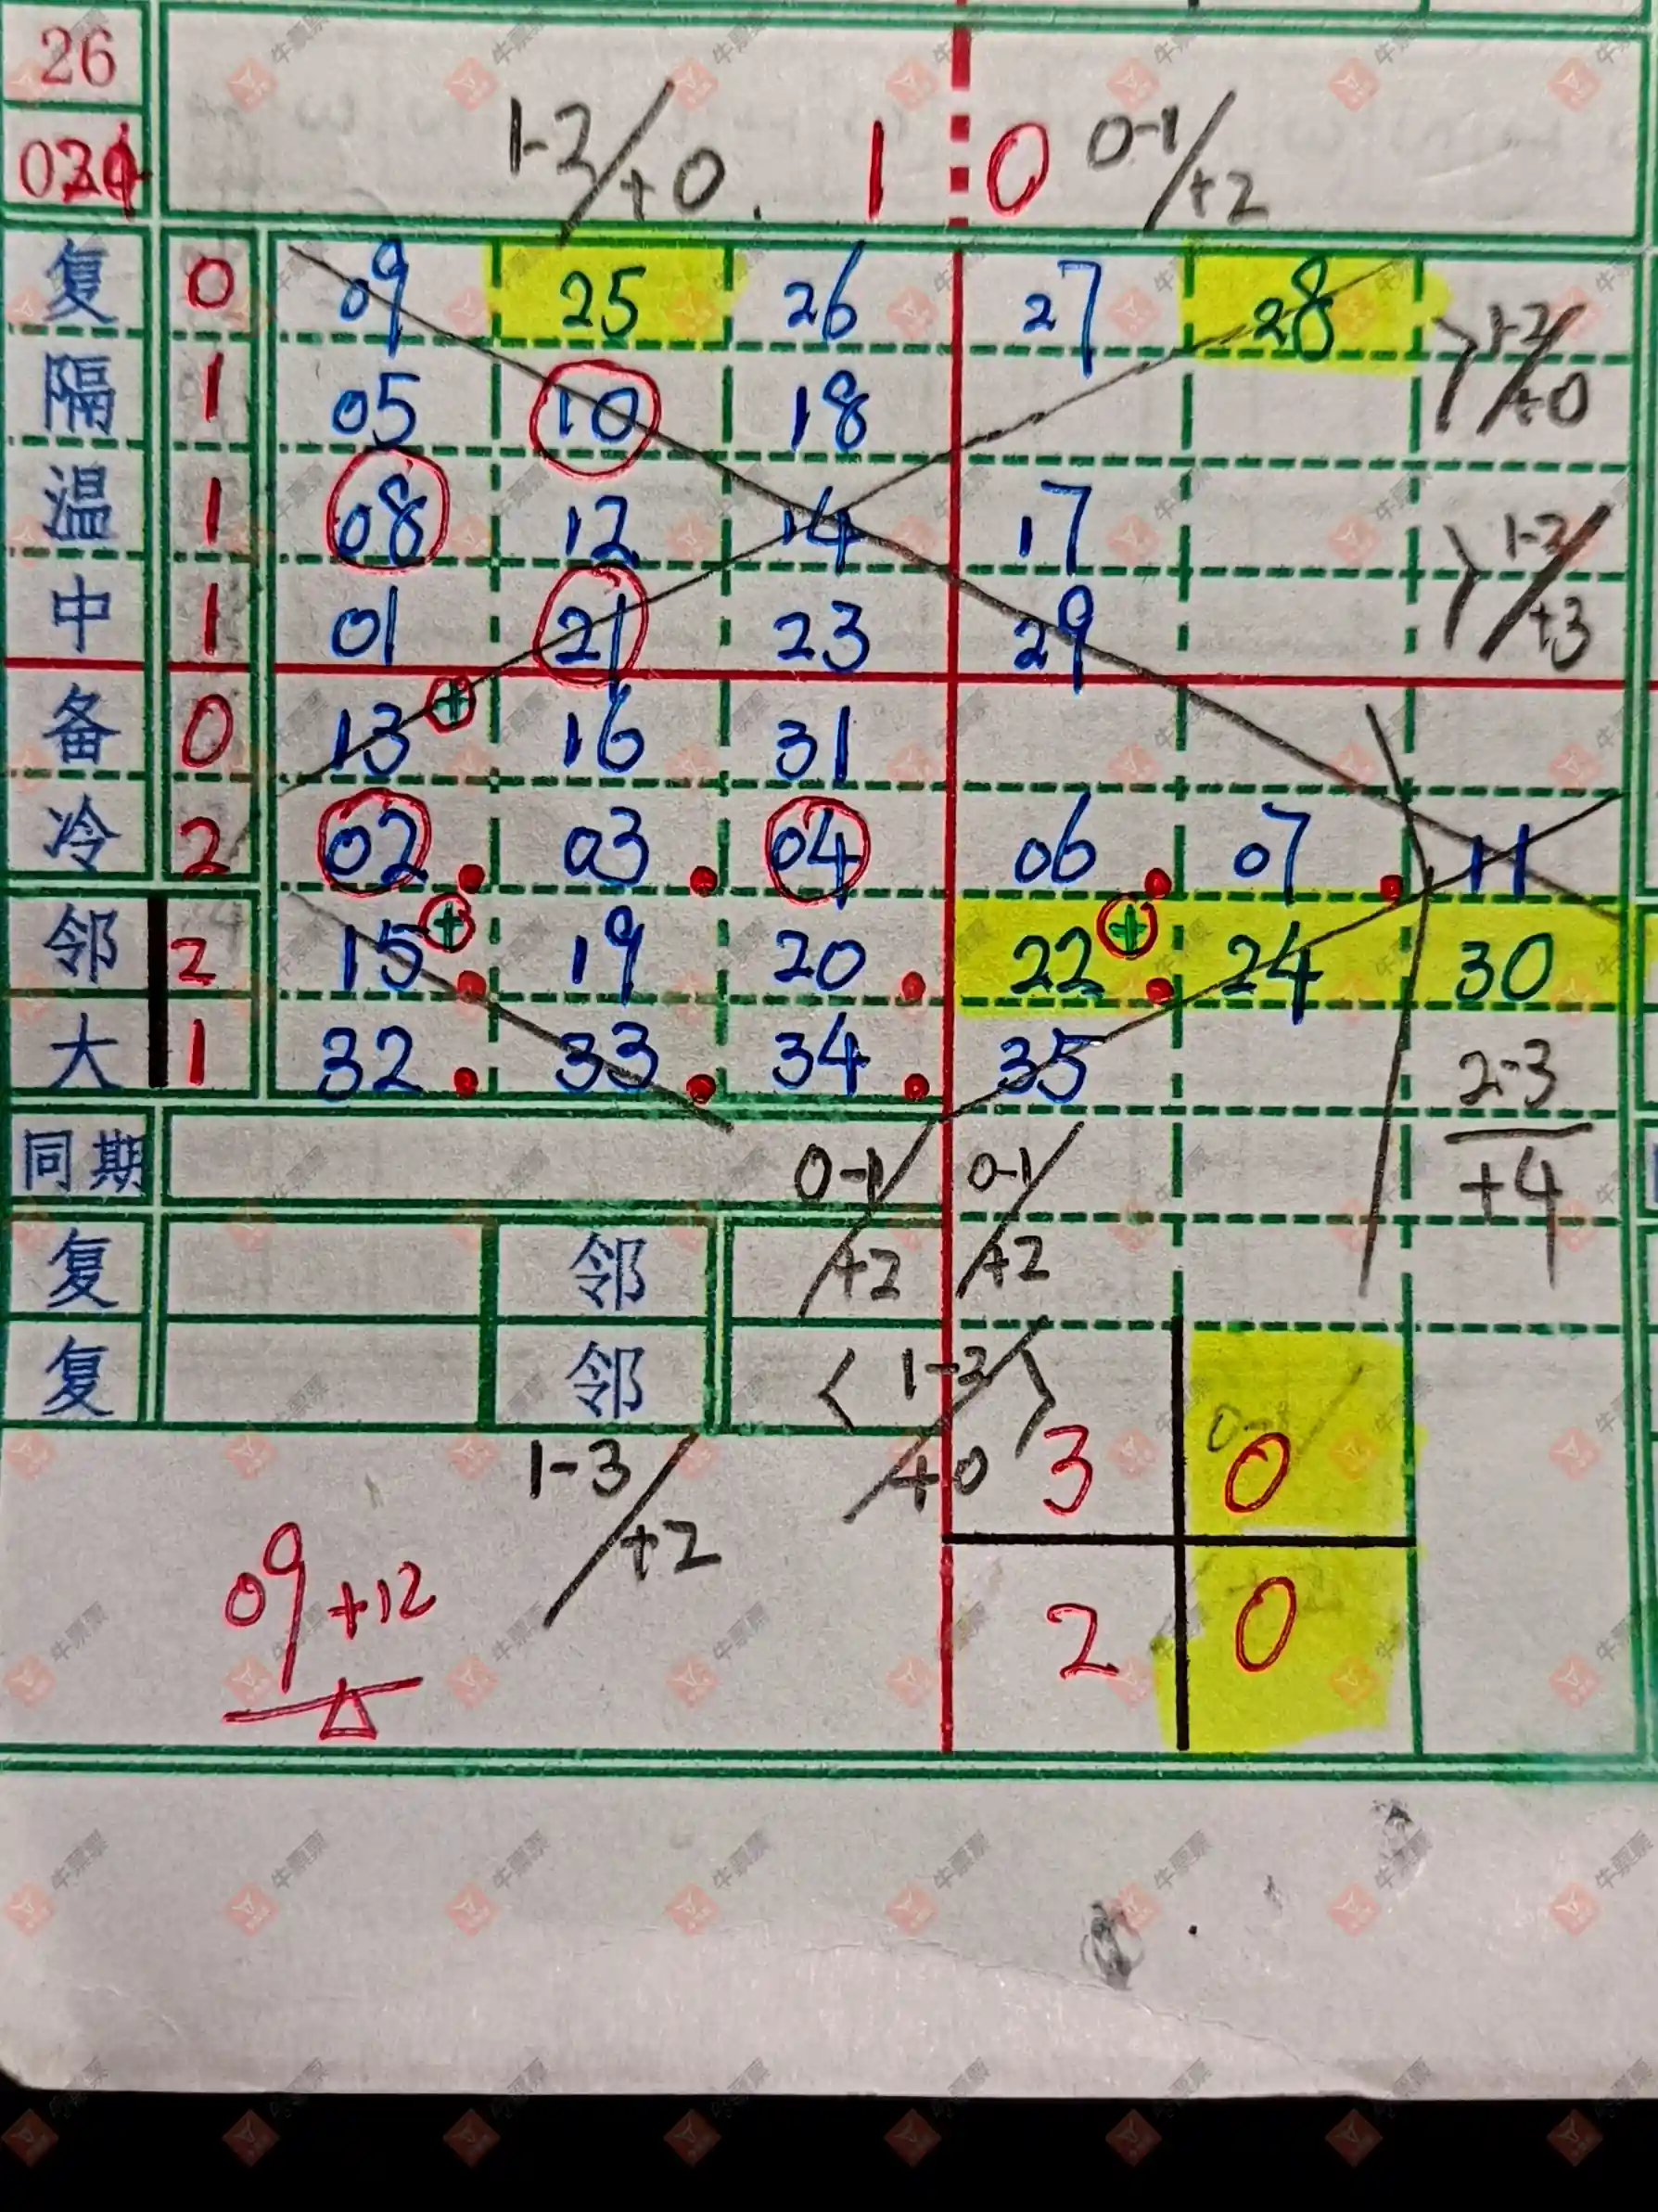 26
1-2/+0 1 0 0-1/+2
复 0 09 25 26 27 28
1-2/+0
隔 1 05 10 18
温 1 08 12 14 17
1-2/+3
中 1 01 21 23 29
备 0 13 + 16 31
冷 2 02 03 04 06 07 11
邻 2 15 + 19 20 22 + 24 30
大 1 32 33 34 35
2-3
+4
同期 0-1/+2 0-1/+2
复 邻
复 邻 <1-2/+0>
1-3/+2 3 0
09 +12 2 0
牛票票